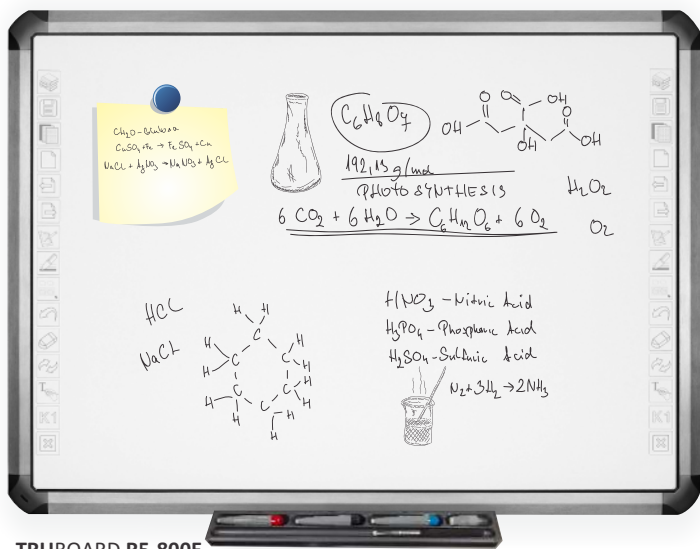 CH2O - Glukosa
CuSO4 + Fe → FeSO4 + Cu
NaCl + AgNO3 → NaNO3 + AgCl
C6H8O7
O
O
OH
O
OH
OH
OH
192,13 g/mol
PHOTOSYNTHESIS
H2O2
6 CO2 + 6 H2O → C6H12O6 + 6 O2
O2
HCl
NaCl
H
H
C
H
H
C
C
H
H
H
C
C
H
H
C
H
H
H
HNO3 - Nitric Acid
H3PO4 - Phosphoric Acid
H2SO4 - Sulfuric Acid
N2 + 3H2 → 2NH3
K1
K1